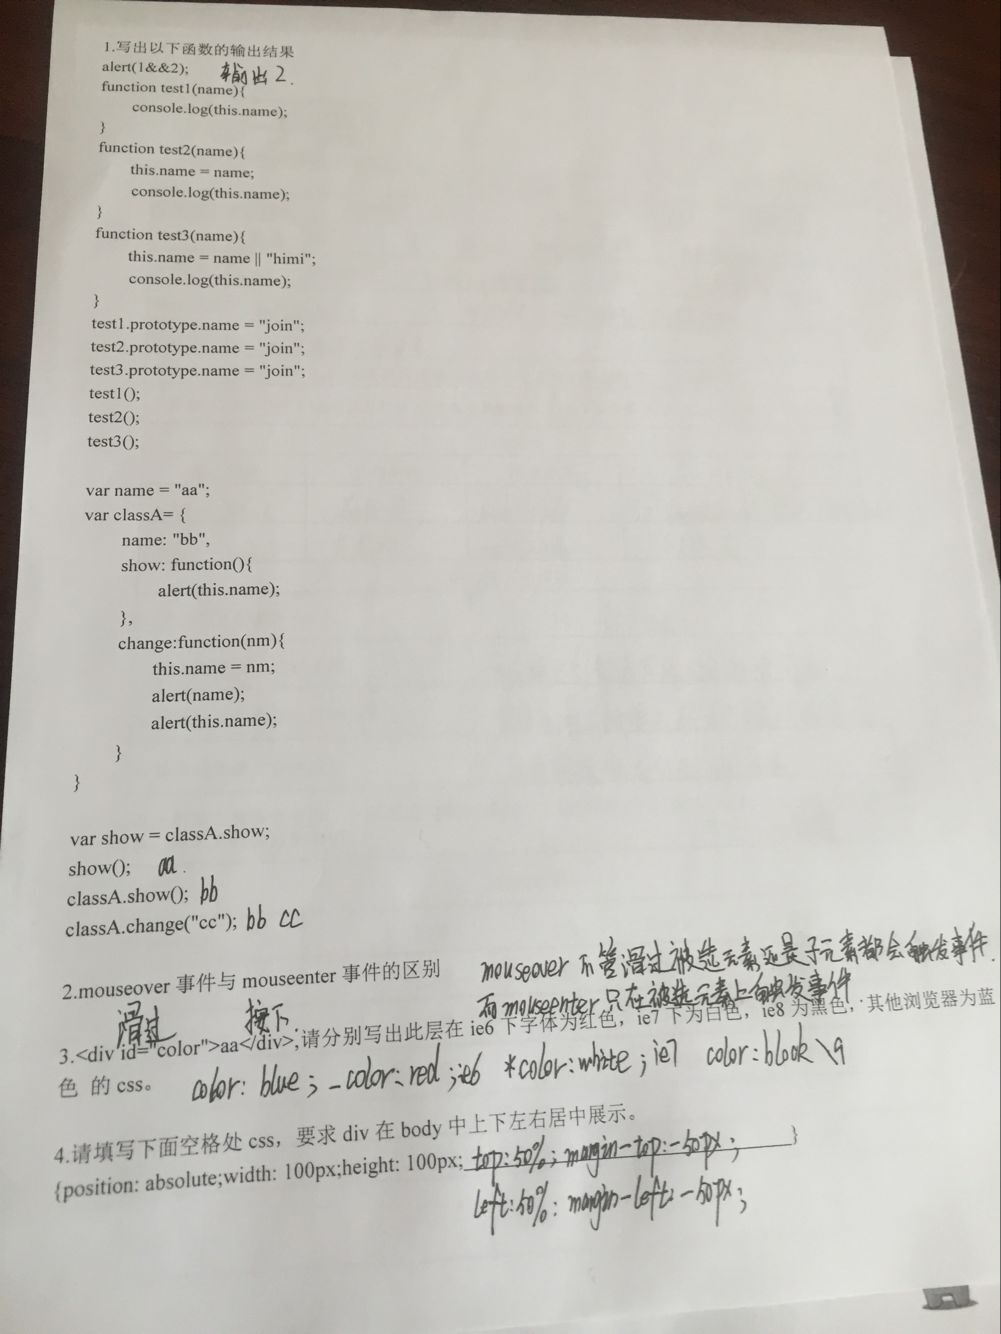 1.写出以下函数的输出结果
alert(1&&2); 输出2.
function test1(name){
console.log(this.name);
}
function test2(name){
this.name = name;
console.log(this.name);
}
function test3(name){
this.name = name || "himi";
console.log(this.name);
}
test1.prototype.name = "join";
test2.prototype.name = "join";
test3.prototype.name = "join";
test1();
test2();
test3();
var name = "aa";
var classA= {
name: "bb",
show: function(){
alert(this.name);
},
change:function(nm){
this.name = nm;
alert(name);
alert(this.name);
}
}
var show = classA.show;
show(); aa.
classA.show(); bb
classA.change("cc"); bb cc
2.mouseover 事件与 mouseenter 事件的区别 mouseover 不管滑过被选元素还是子元素都会触发事件.
滑过 按下. 而mouseenter只在被选元素上触发事件
3.<div id="color">aa</div>,请分别写出此层在 ie6 下字体为红色，ie7 下为白色，ie8 为黑色，其他浏览器为蓝
色 的 css。 color: blue; _color: red; ie6 *color: white; ie7 color: black \9
4.请填写下面空格处 css，要求 div 在 body 中上下左右居中展示。
{position: absolute;width: 100px;height: 100px; top: 50%; margin-top: -50px; }
left: 50%; margin-left: -50px;